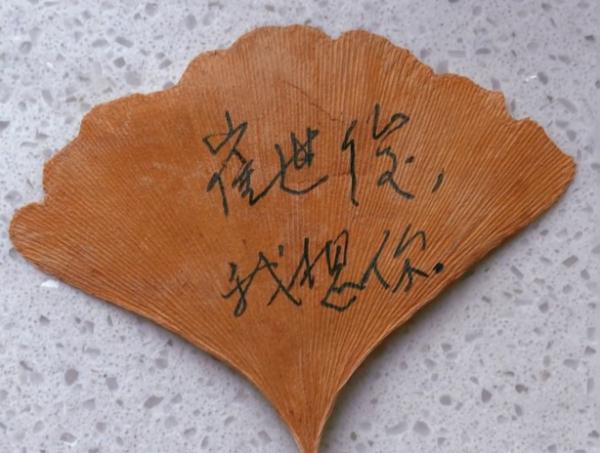 崔世俊，
我想你。